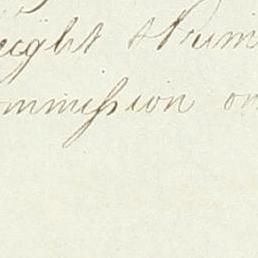 eight Prim
ommission on